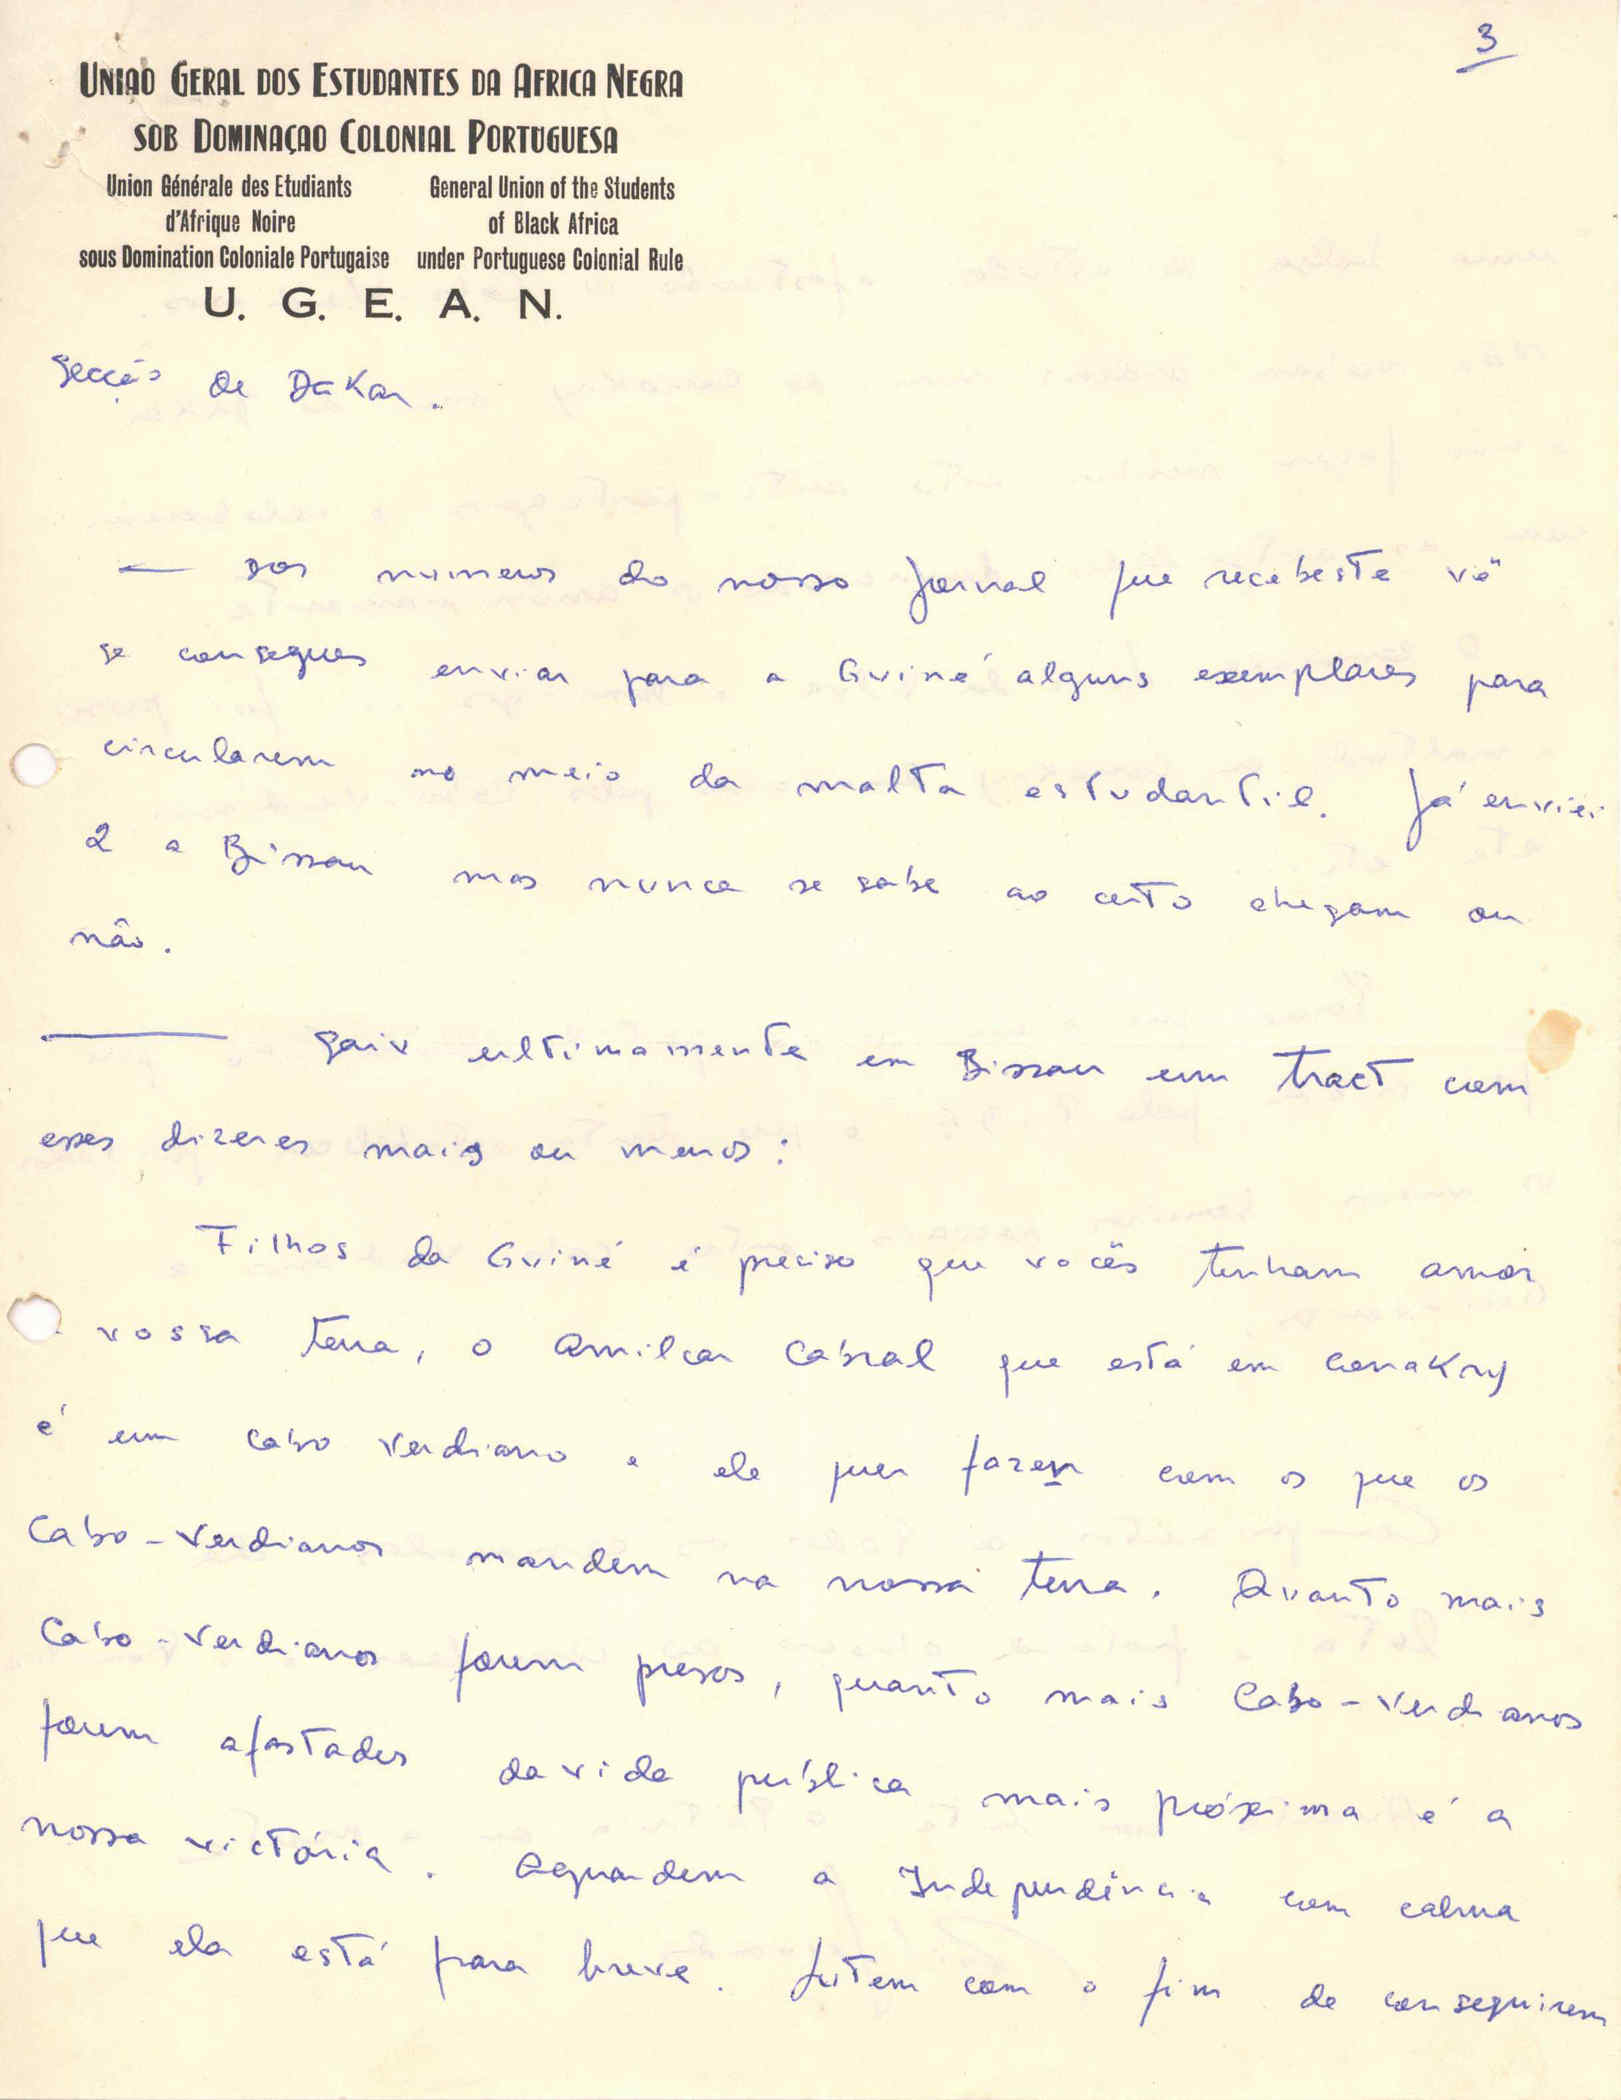 3
UNIAO GERAL DOS ESTUDANTES DA AFRICA NEGRA
SOB DOMINAÇAO COLONIAL PORTUGUESA
Union Générale des Etudiants
d'Afrique Noire
sous Domination Coloniale Portugaise
General Union of the Students
of Black Africa
under Portuguese Colonial Rule
U. G. E. A. N.
Secção de Dakar.
— Dos numeros do nosso Jornal que recebeste vê
se consegues enviar para a Guiné alguns exemplares para
circularem no meio da malta estudantil. Já enviei
2 a Bissau mas nunca se sabe ao certo chegam ou
não.
— Saiu ultimamente em Bissau um tract com
esses dizeres mais ou menos:
Filhos da Guiné é preciso que vocês tenham amor
vossa terra, o Amilcar Cabral que está em Conakry
é um cabo verdiano e ele quer fazer com os que os
Cabo-Verdianos mandem na nossa terra. Quanto mais
Cabo-Verdianos forem presos, quanto mais Cabo-Verdianos
forem afastados da vida pública mais próxima é a
nossa victória. Aguardem a Independência com calma
que ela está para breve. Lutem com o fim de conseguirem